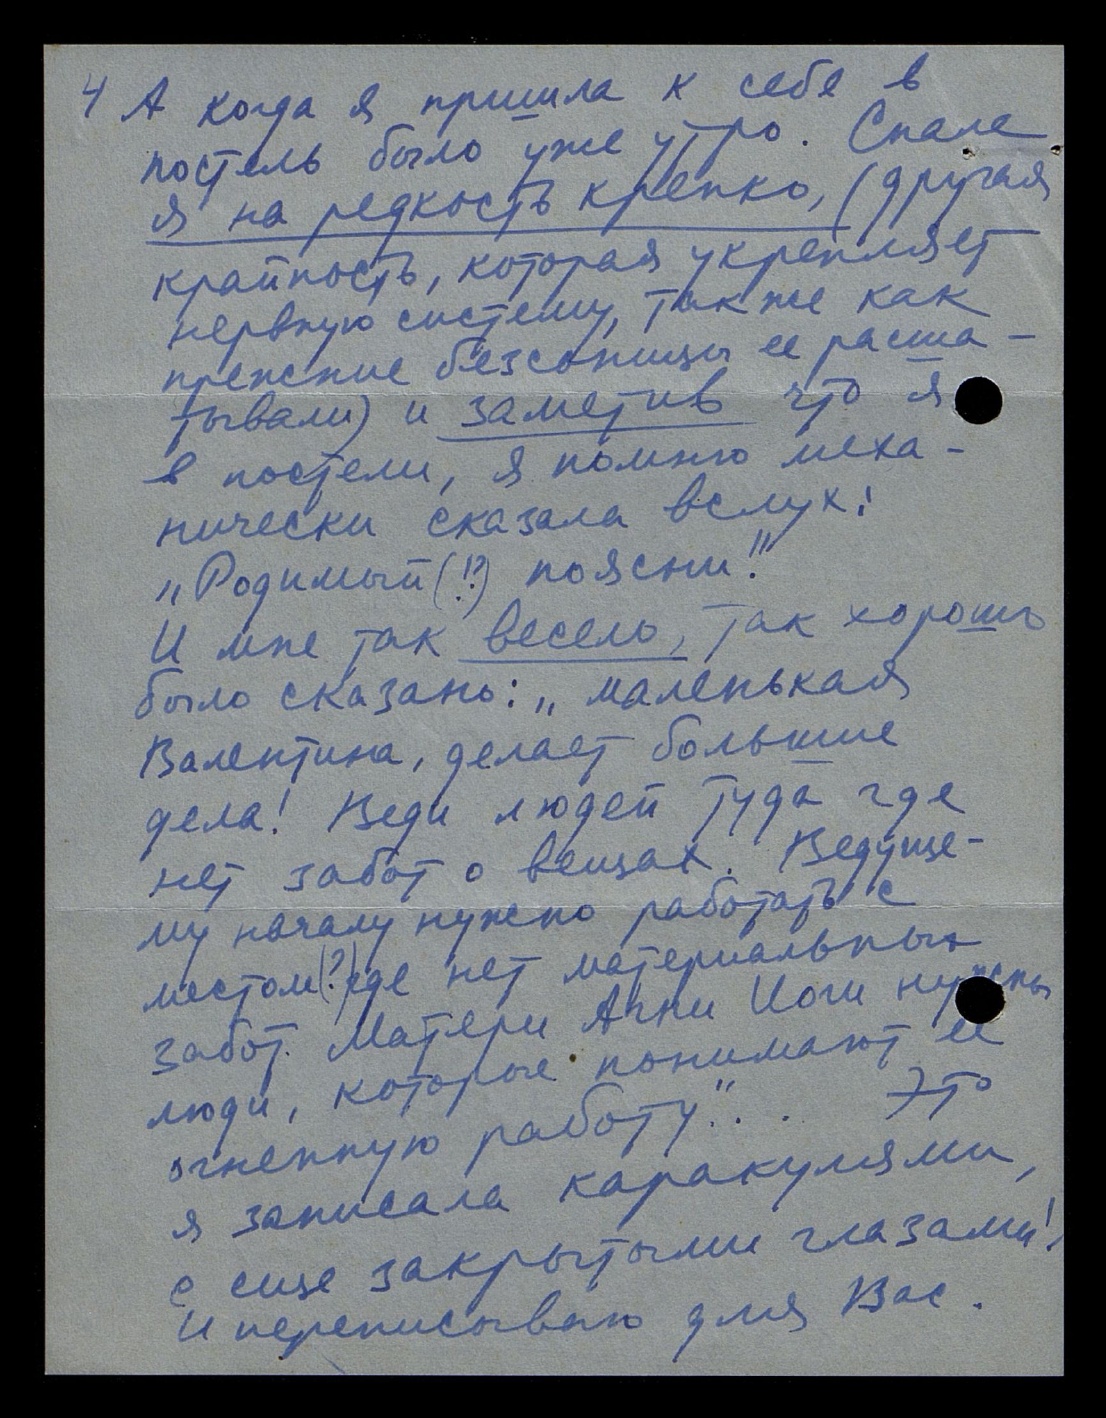 4 А когда я пришла к себе в
постель было уже утро. Спала
я на редкость крепко, (другая
крайность, которая укрепляет
нервную систему, так же как
прежние безсонницы ее расша-
тывали) и заметив что я
в постели, я помню меха-
нически сказала вслух:
„Родимый (!?) поясни!"
И мне так весело, так хорошо
было сказано: „маленькая
Валентина, делает большие
дела! Веди людей туда где
нет забот о вещах. Ведуще-
му началу нужно работать с
местом (?) где нет материальных
забот. Матери Агни Йоги нужны
люди, которые понимают ее
огненную работу"... Это
я записала каракулями,
с еще закрытыми глазами!
И переписываю для Вас.